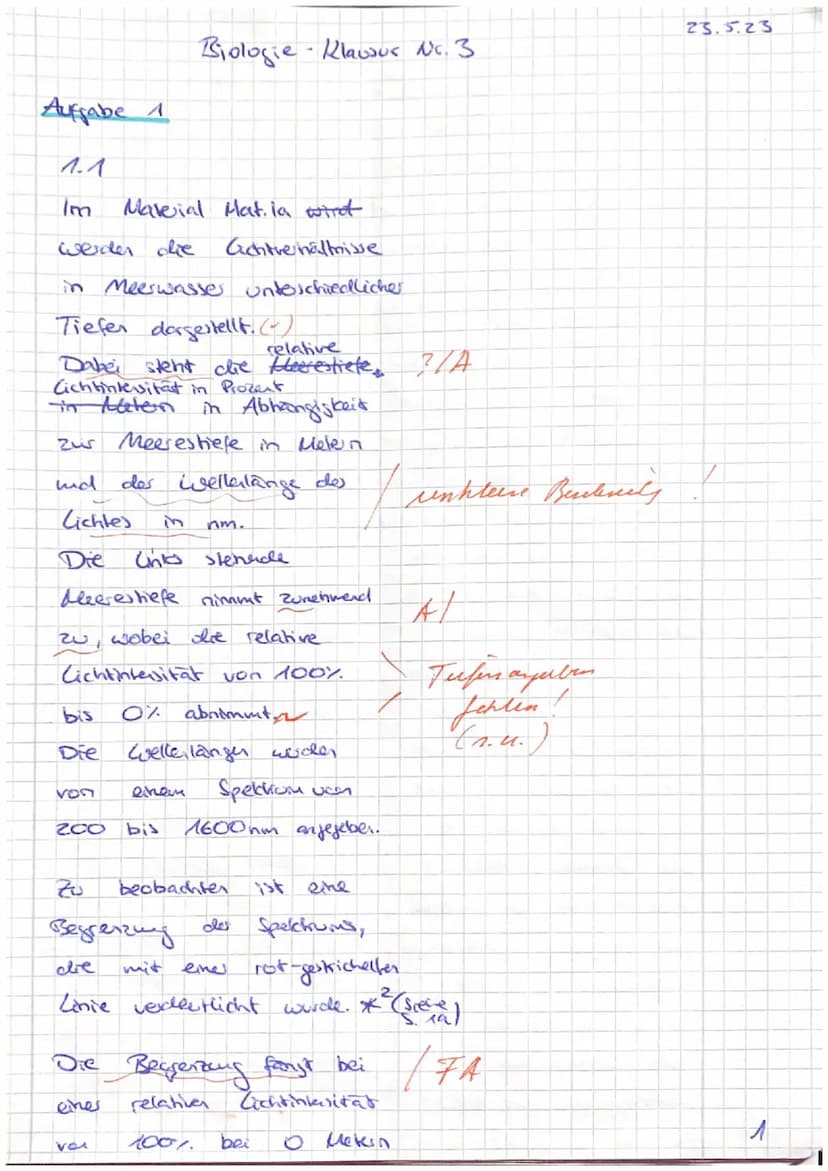 23.5.23
Biologie - Klausur Nr. 3
Aufgabe 1
1.1
Im Material Mat. 1a wird
werden die Lichtverhältnisse
in Meerwasser unterschiedlicher
Tiefen dargestellt. (-)
relative
Dabei steht die Meerestiefe ?/A
Lichtintensität in Prozent
in Metern in Abhängigkeit
zur Meerestiefe in Metern
und der Wellenlänge des
Lichtes in nm. / unklare !
Die links stehende
Meerestiefe nimmt zunehmend
zu, wobei die relative A/
Lichtintensität von 100% Tiefenangaben
bis 0% abnimmt. fehlen!
(s. u.)
Die Wellenlängen werden
von einem Spektrum von
200 bis 1600 nm angegeben.
Zu beobachten ist eine
Begrenzung des Spektrums,
die mit einer rot-gestrichelten
Linie verdeutlicht wurde. *² (siehe
S. 1a)
Die Begrenzung fängt bei / FA
einer relativen Lichtintensität
von 100% bei 0 Metern
1